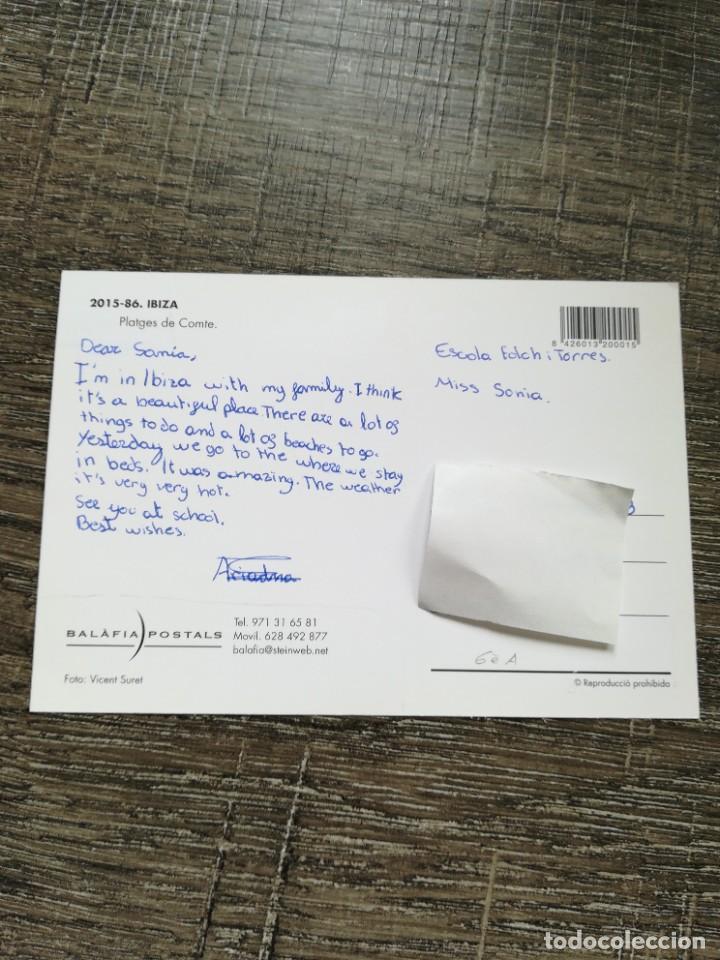 2015-86. IBIZA
Platges de Comte.
8 426013 200015
Dear Sonia,
I'm in Ibiza with my family. I think
it's a beautiful place. There are a lot of
things to do and a lot of beaches to go.
Yesterday we go to the where we stay
in beds. It was amazing. The weather
it's very very hot.
See you at school.
Best wishes.
Ariadna
Escola Folch i Torres.
Miss Sonia.
6è A
BALÀFIA POSTALS
Tel. 971 31 65 81
Movil. 628 492 877
balafia@steinweb.net
Foto: Vicent Suret
© Reproducció prohibida
todocoleccion